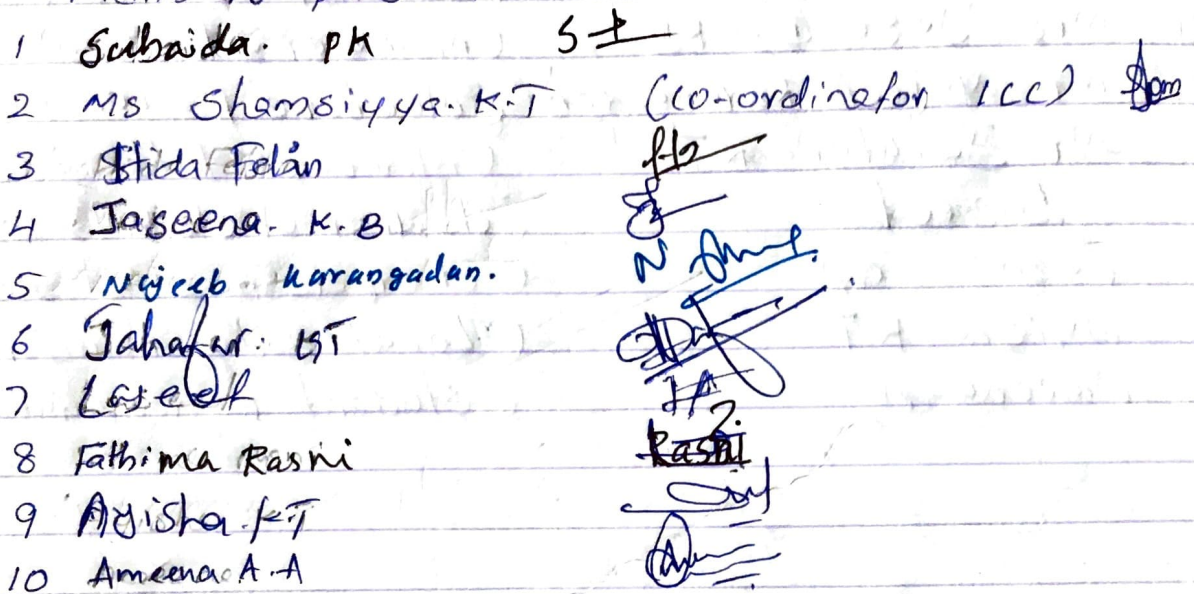 1 Subaida. PK
2 Ms Shamsiyya. K.T (Co-ordinator ICC)
3 Hida Felan
4 Jaseena. K.B
5 Najeeb Karangadan.
6 Jahafar. KT
7 Laseef
8 Fathima Rasni Rasni
9 Ayisha. KT
10 Ameena A.A